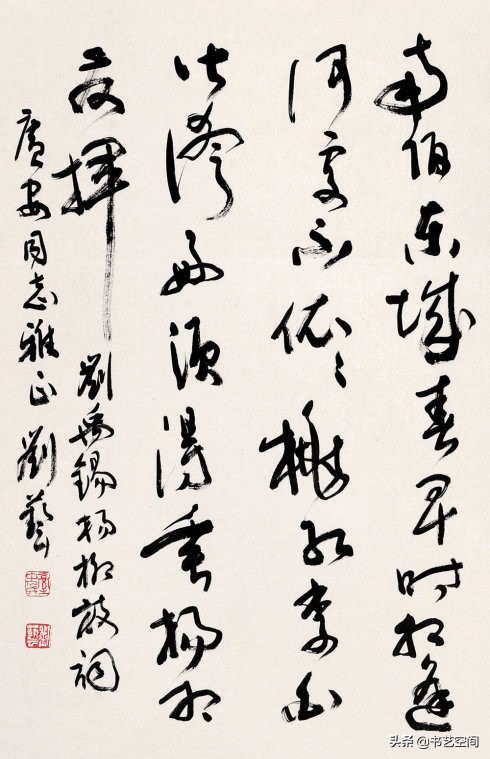 南陌东城春早时相逢
何处不依〻桃红李白
皆誇好须得垂杨相
发挥 劉禹锡杨柳枝词
安同志雅正 劉藝
头条 @书艺空间